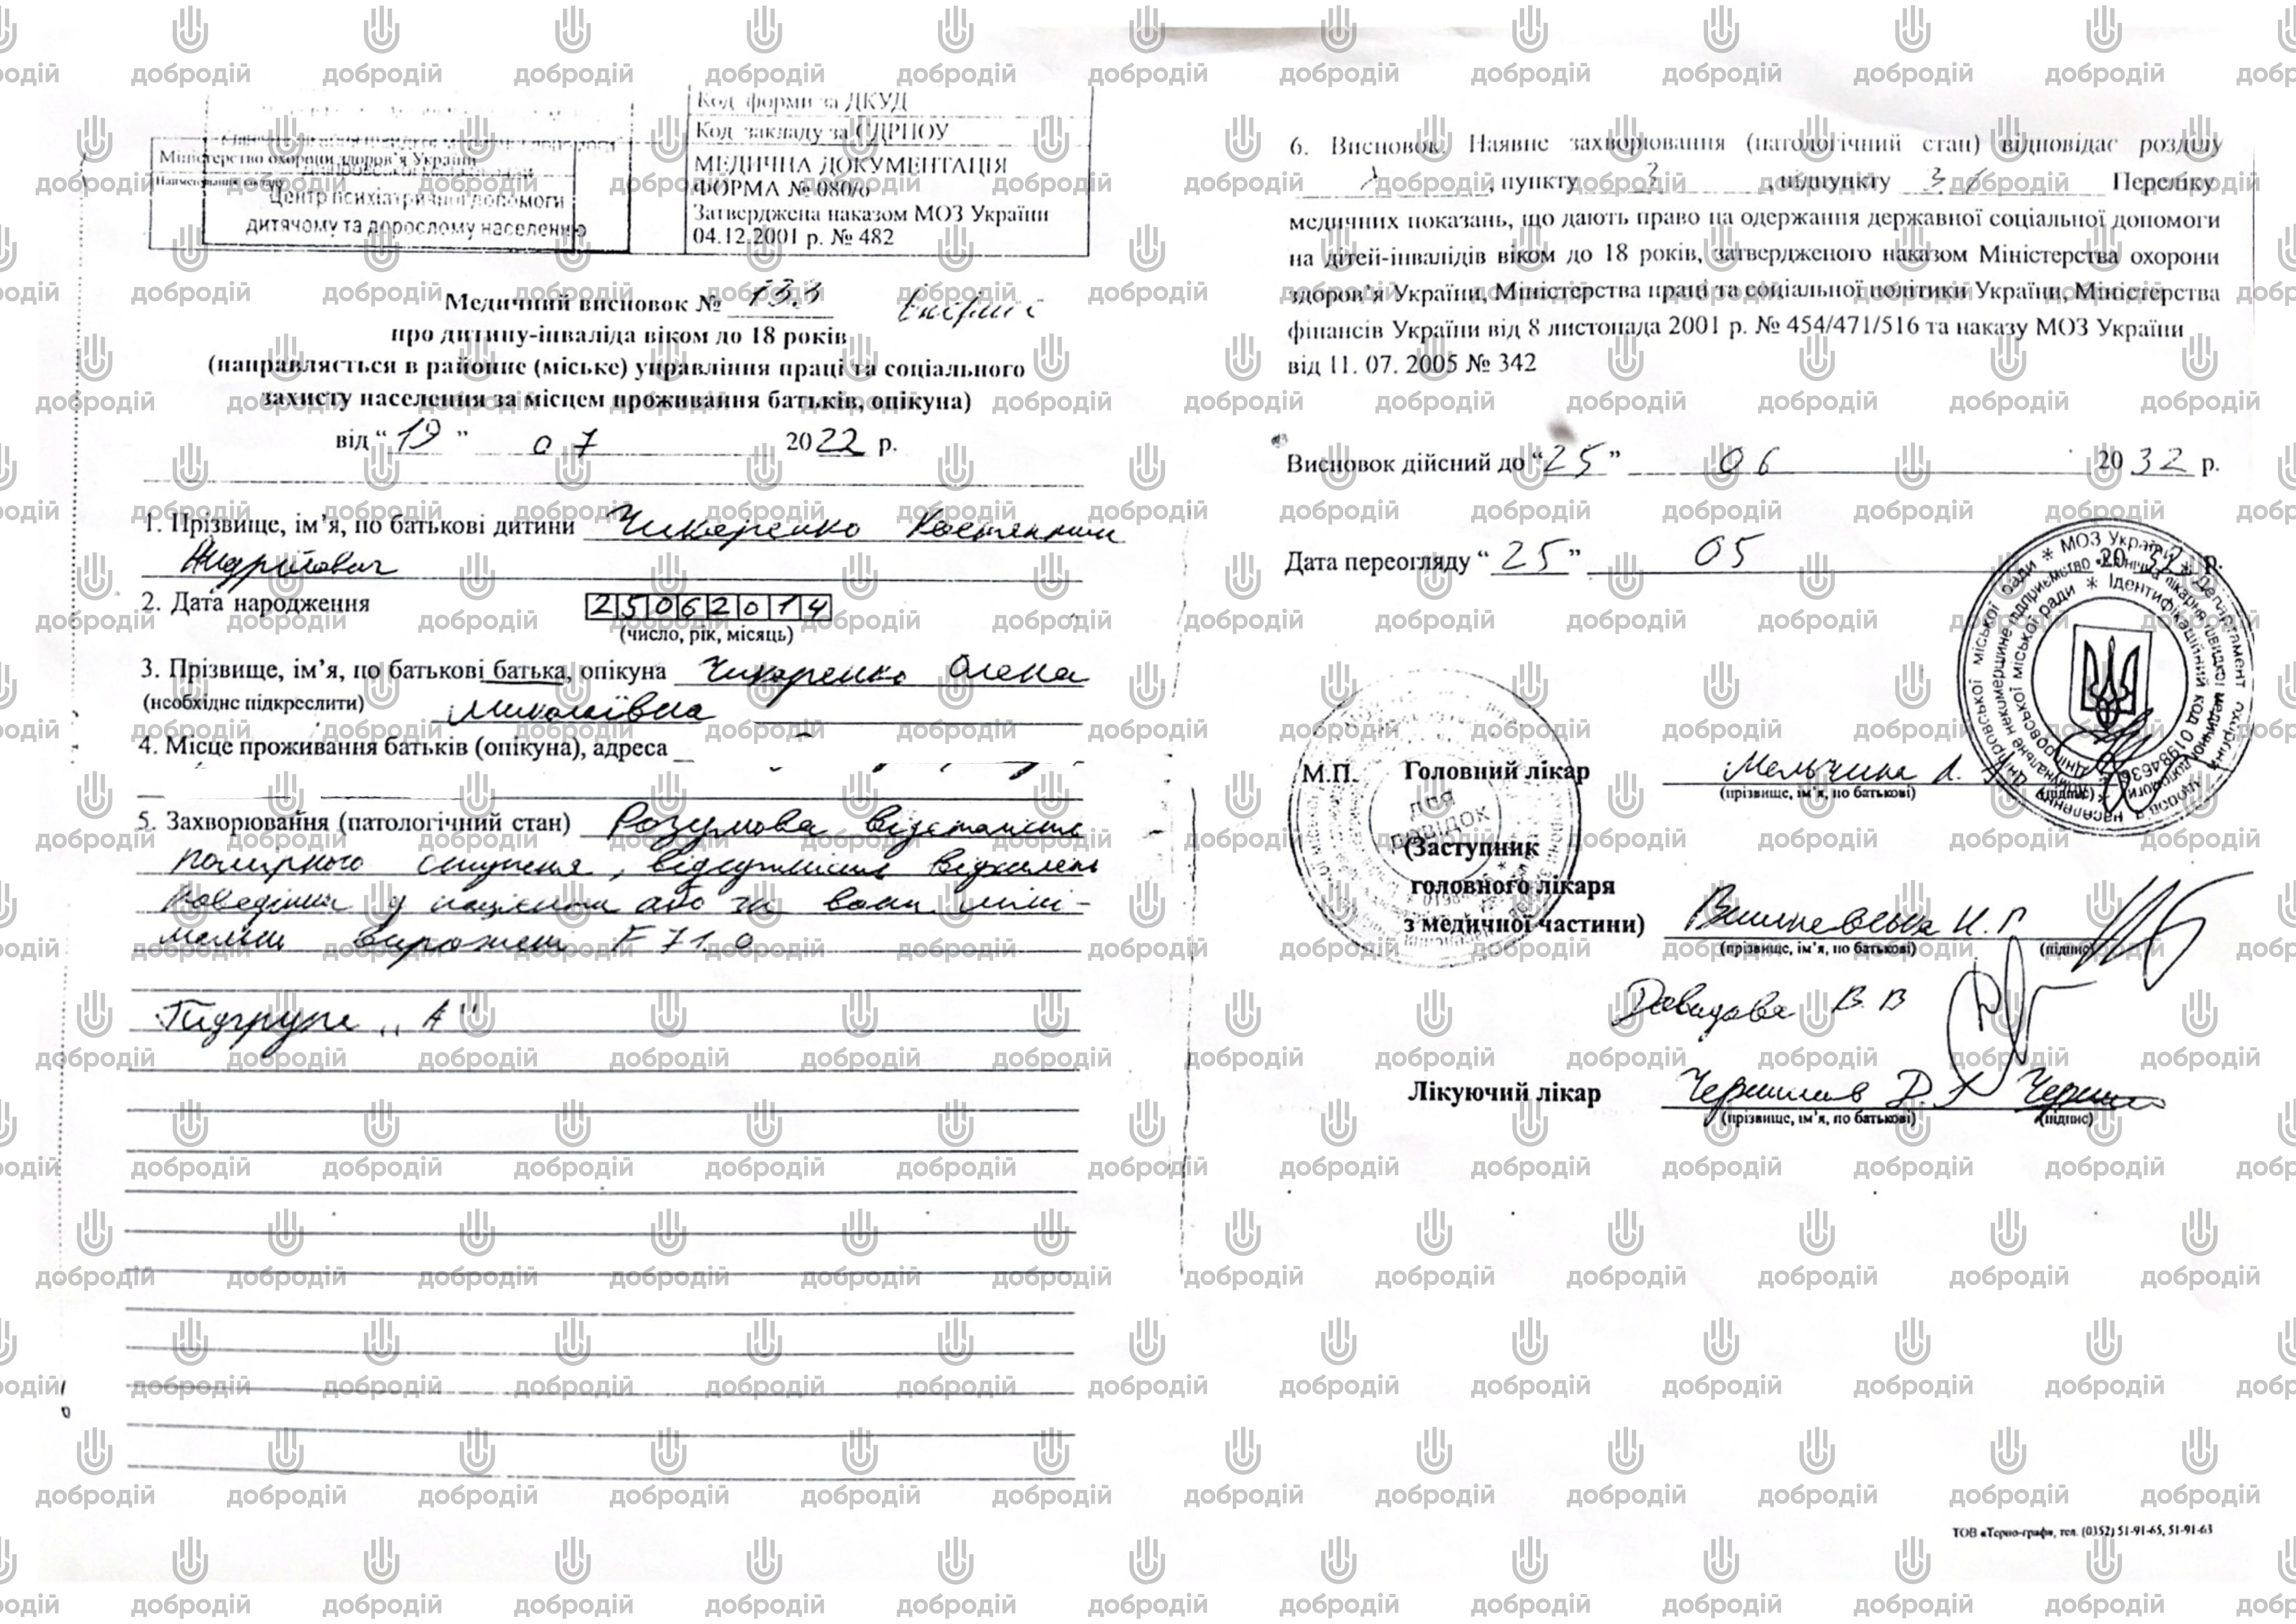 Код форми за ДКУД
Код закладу за ЄДРПОУ
Міністерство охорони здоров'я України
Найменування закладу
Центр психіатричної допомоги
дитячому та дорослому населенню
МЕДИЧНА ДОКУМЕНТАЦІЯ
ФОРМА № 080/о
Затверджена наказом МОЗ України
04.12.2001 р. № 482
Медичний висновок № 133
про дитину-інваліда віком до 18 років
(направляється в районне (міське) управління праці та соціального
захисту населення за місцем проживання батьків, опікуна)
від “19” 07 2022 р.
1. Прізвище, ім’я, по батькові дитини Чикаренко Костянтин
Андрійович
2. Дата народження 25062014
(число, рік, місяць)
3. Прізвище, ім’я, по батькові батька, опікуна Чикаренко Олена
(необхідне підкреслити) Миколаївна
4. Місце проживання батьків (опікуна), адреса
5. Захворювання (патологічний стан) Розумова відсталість
помірного ступеня, відсутність відхилень
поведінки у пацієнта або за вони міні-
мально виражені F 71.0
Підгрупа „А"
6. Висновок. Наявне захворювання (патологічний стан) відповідає розділу
, пункту 3, підпункту 3.1 Переліку
медичних показань, що дають право на одержання державної соціальної допомоги
на дітей-інвалідів віком до 18 років, затвердженого наказом Міністерства охорони
здоров’я України, Міністерства праці та соціальної політики України, Міністерства
фінансів України від 8 листопада 2001 р. № 454/471/516 та наказу МОЗ України
від 11. 07. 2005 № 342
Висновок дійсний до “25” 06 2032 р.
Дата переогляду “25” 05 2032 р.
М.П. Головний лікар
(прізвище, ім’я, по батькові) (підпис)
для
довідок
(Заступник
головного лікаря
з медичної частини) Вишневська Н.Г
(прізвище, ім’я, по батькові) (підпис)
Давидова В.В
Лікуючий лікар
(прізвище, ім’я, по батькові) (підпис)
ТОВ «Терно-граф», тел. (0352) 51-91-65, 51-91-63
добродій